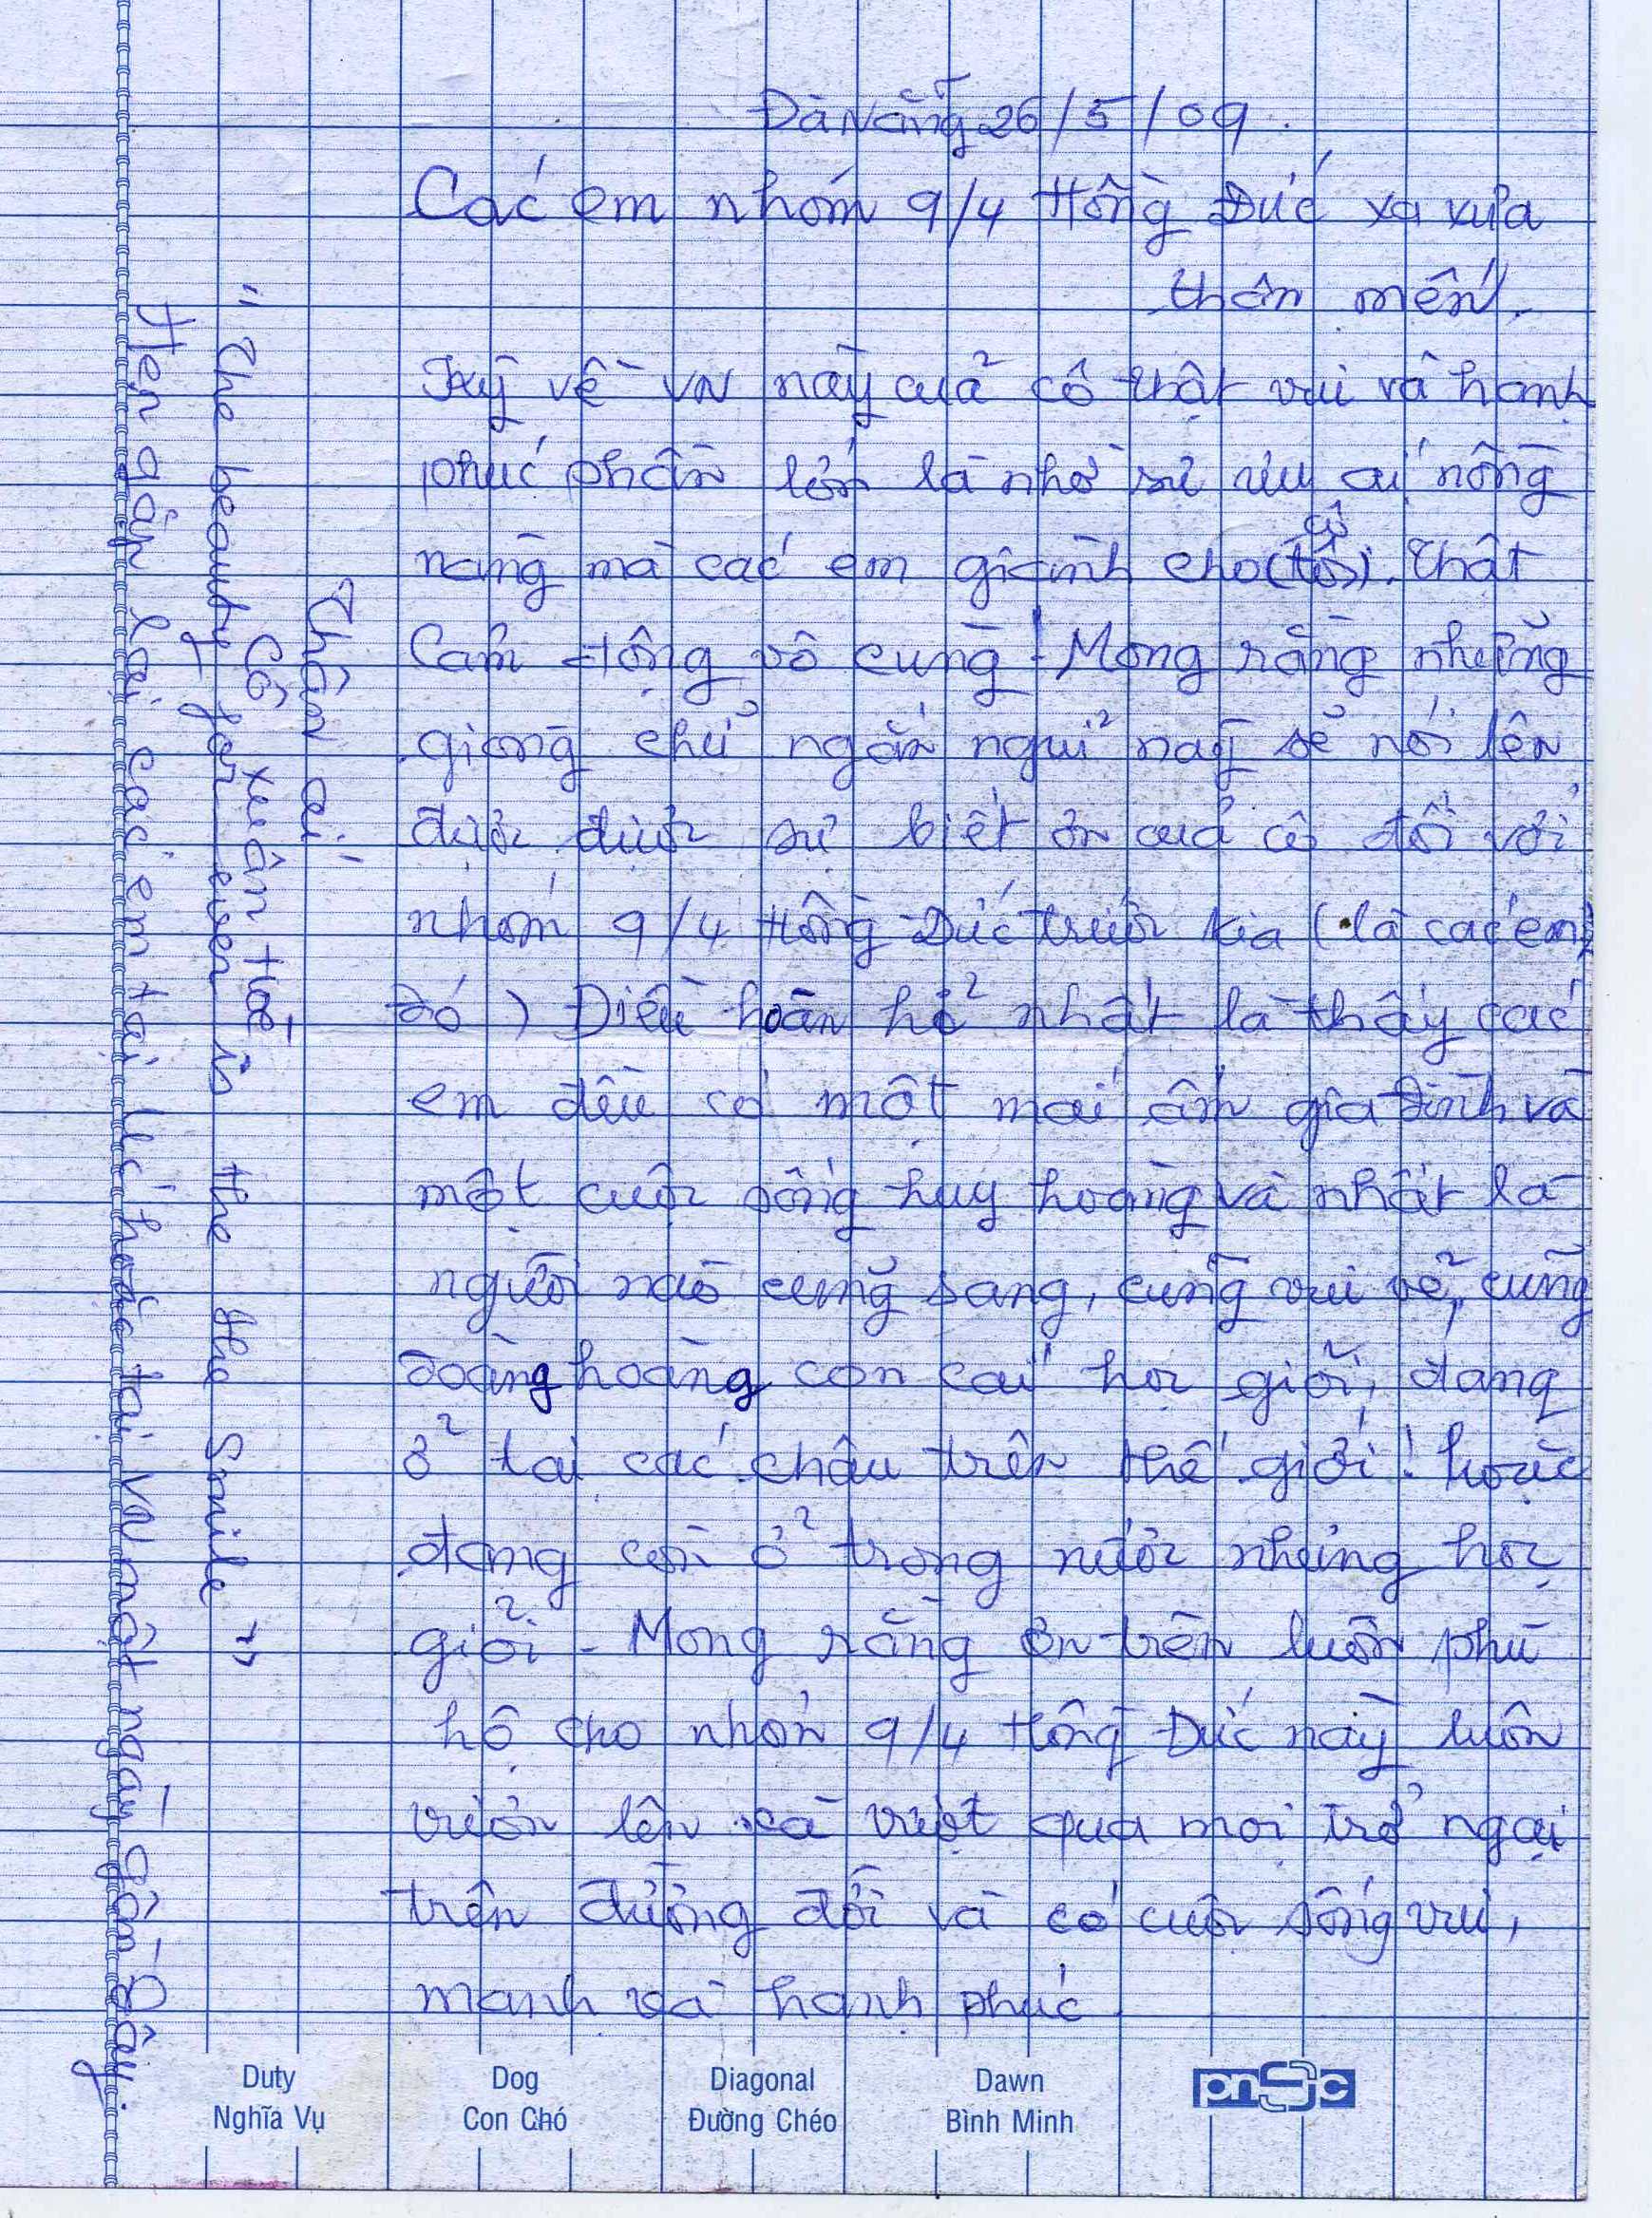 Đà Nẵng 26/5/09.
Các em nhóm 9/4 Hồng Đức xa xưa
thân mến.
Kỳ về VN này của cô thật vui và hạnh
phúc phần lớn là nhờ sự ưu ái nồng
nàng mà các em giành cho (tôi) cô. Thật
Cảm động vô cùng! Mong rằng những
giòng chữ ngắn ngủi này sẽ nói lên
được được sự biết ơn của cô đối với
nhóm 9/4 Hồng Đức trước kia (là các em
đó) Điều hoàn hỏ nhất là thấy các
em đều có một mái ấm gia đình và
một cuộc sống huy hoàng và nhất là
người nào cũng sang, cũng vui vẻ, cũng
đoàng hoàng con cái học giỏi, đang
ở tại các châu trên thế giới! hoặc
đang còn ở trong nước nhưng học
giỏi - Mong rằng ơn trên luôn phù
hộ cho nhóm 9/4 Hồng Đức này luôn
vươn lên và vượt qua mọi trở ngại
trên đường đời và có cuộc sống vui,
mạnh và hạnh phúc
Thân ái
Cô Xuân Hoè
"The beauty for ever is the the Smile"
Hẹn gặp lại các em tại Úc hoặc tại VN một ngày gần đây.
Duty
Nghĩa Vụ
Dog
Con Chó
Diagonal
Đường Chéo
Dawn
Bình Minh
pnSc